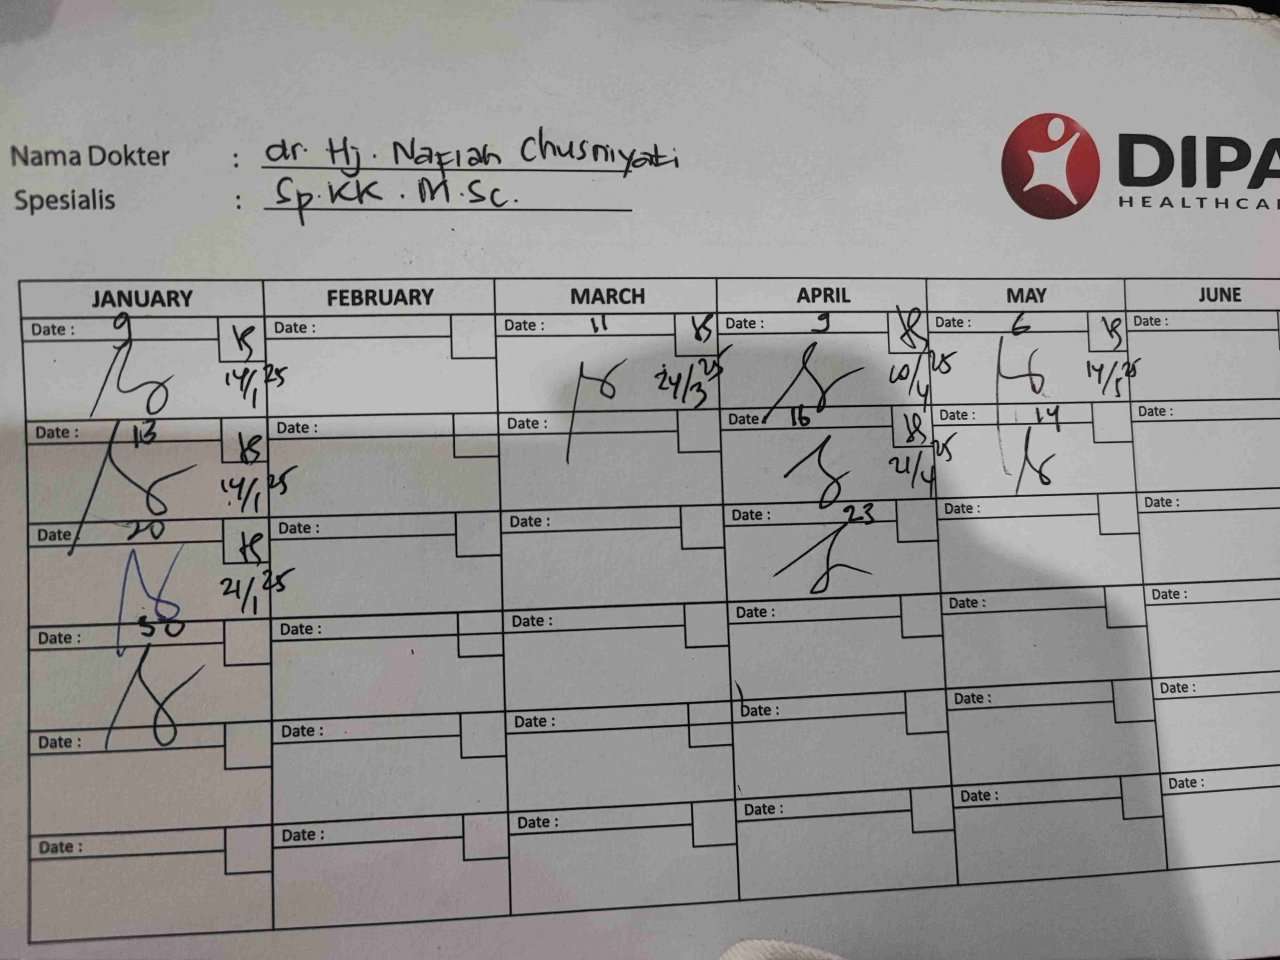 Nama Dokter : dr. Hj. Nafiah Chusniyati
Spesialis : Sp.KK . M.Sc.
DIPA
HEALTHCA
JANUARY FEBRUARY MARCH APRIL MAY JUNE
Date : 9 Date : Date : 11 Date : 9 Date : 6 Date :
14/1 25 24/3 25 10/4 25 14/5 25
Date : 13 Date : Date : Date 16 Date : 14 Date :
14/1 25 21/4 25
Date 20 Date : Date : Date : 23 Date : Date :
21/1 25
Date : 30 Date : Date : Date : Date : Date :
Date : Date : Date : Date : Date : Date :
Date : Date : Date : Date : Date : Date :